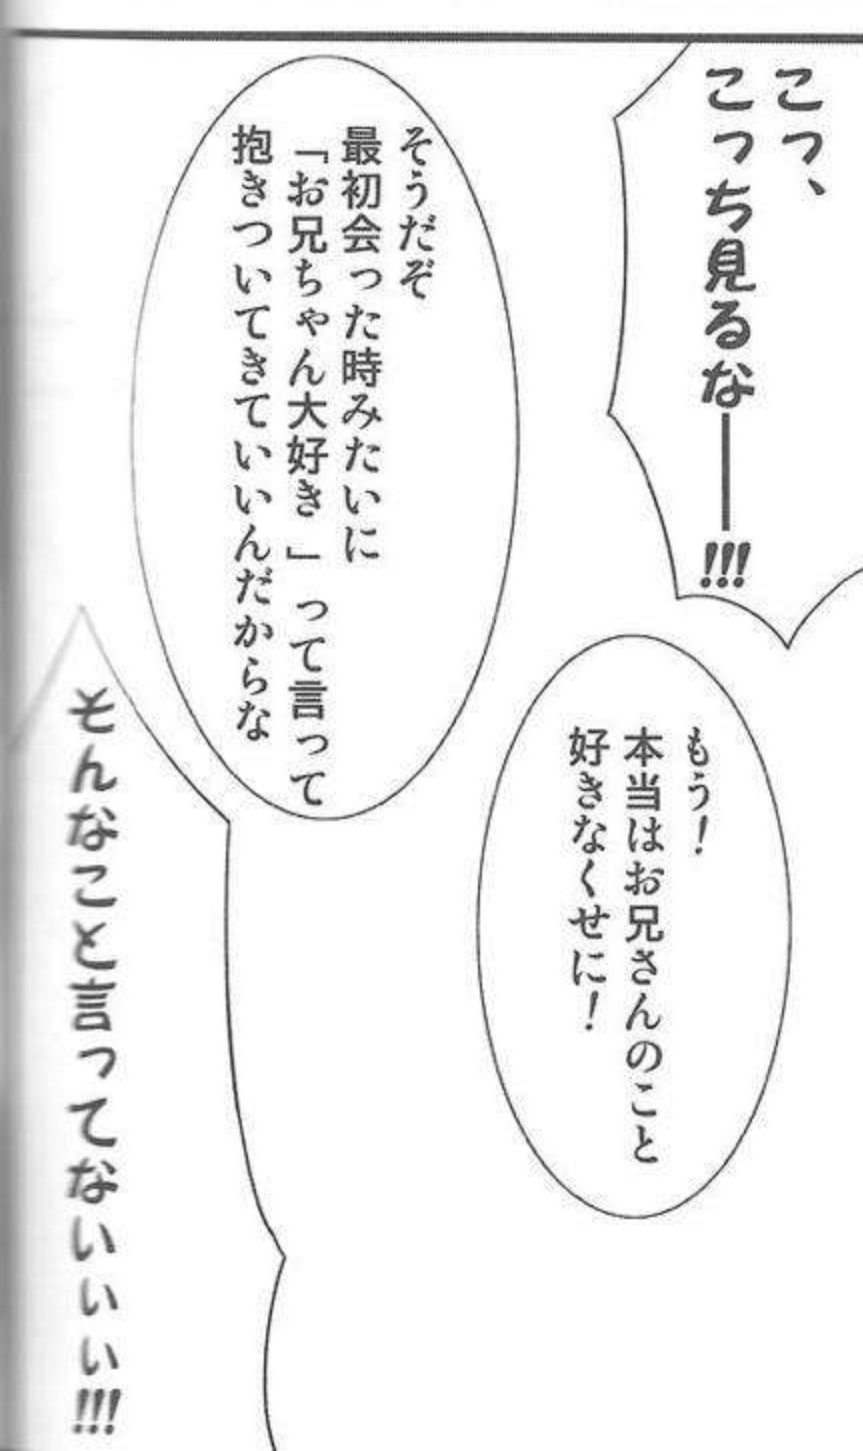 こっ、
こっち見るな━━!!!
もう！
本当はお兄さんのこと
好きなくせに！
そうだぞ
最初会った時みたいに
「お兄ちゃん大好き」って言って
抱きついてきていいんだからな
そんなこと言ってないぃぃ!!!